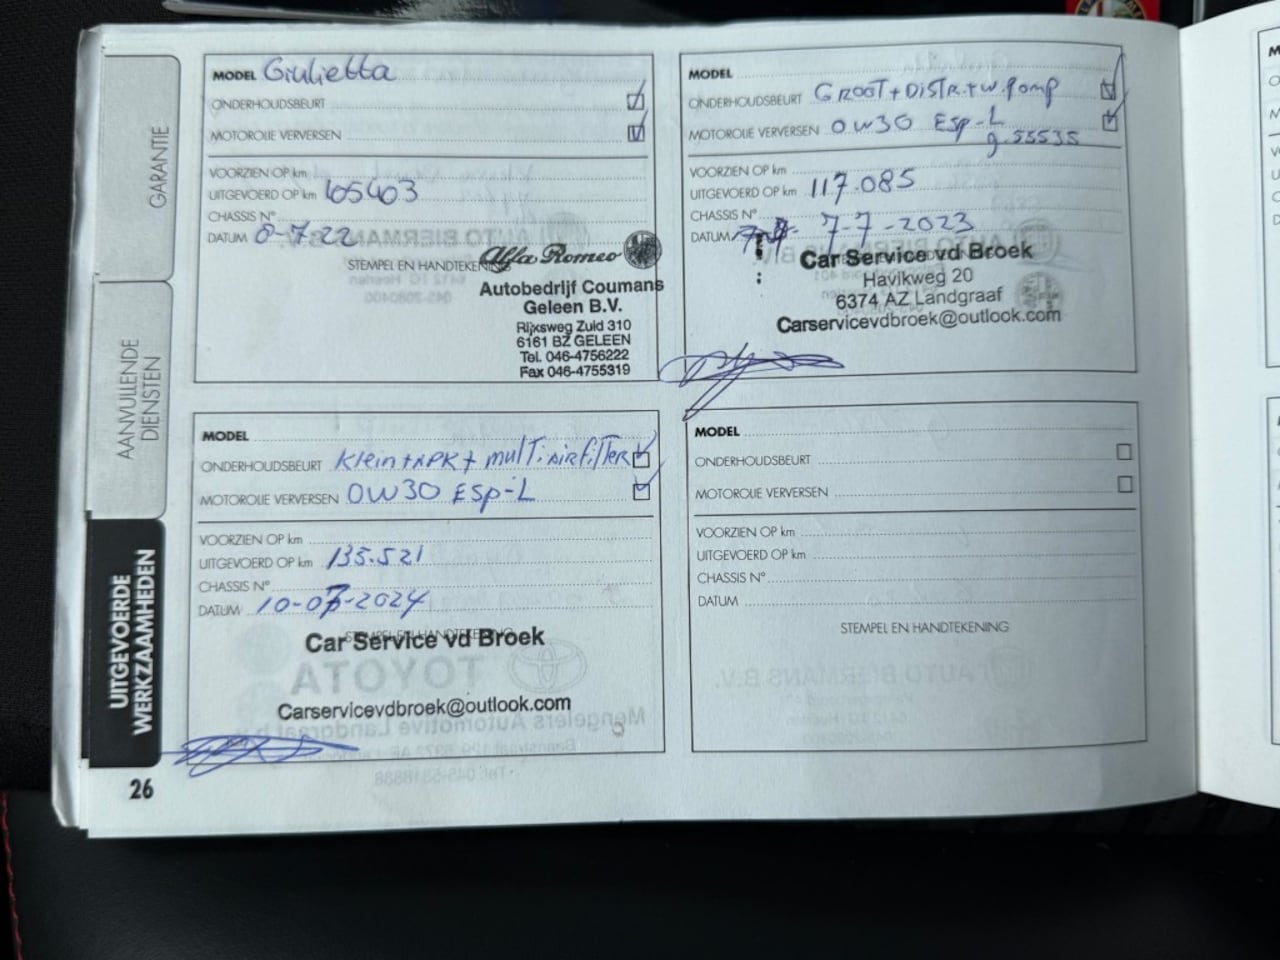 GARANTIE
AANVULLENDE
DIENSTEN
UITGEVOERDE
WERKZAAMHEDEN
26
MODEL Giulietta
ONDERHOUDSBEURT
MOTOROLIE VERVERSEN
VOORZIEN OP km
UITGEVOERD OP km 105403
CHASSIS N°
DATUM 8-7-22
STEMPEL EN HANDTEKENING
Alfa Romeo
Autobedrijf Coumans
Geleen B.V.
Rijksweg Zuid 310
6161 BZ GELEEN
Tel. 046-4756222
Fax 046-4755319
MODEL
ONDERHOUDSBEURT GROOT+DISTR.+W.Pomp
MOTOROLIE VERVERSEN 0W30 ESP-L
g.55535
VOORZIEN OP km
UITGEVOERD OP km 117.085
CHASSIS N°
DATUM 7-7-2023
Car Service vd Broek
Havikweg 20
6374 AZ Landgraaf
Carservicevdbroek@outlook.com
MODEL
ONDERHOUDSBEURT Klein+APK+ multiAIRfilTER
MOTOROLIE VERVERSEN 0W30 ESP-L
VOORZIEN OP km
UITGEVOERD OP km 135.521
CHASSIS N°
DATUM 10-07-2024
STEMPEL EN HANDTEKENING
Car Service vd Broek
Carservicevdbroek@outlook.com
MODEL
ONDERHOUDSBEURT
MOTOROLIE VERVERSEN
VOORZIEN OP km
UITGEVOERD OP km
CHASSIS N°
DATUM
STEMPEL EN HANDTEKENING